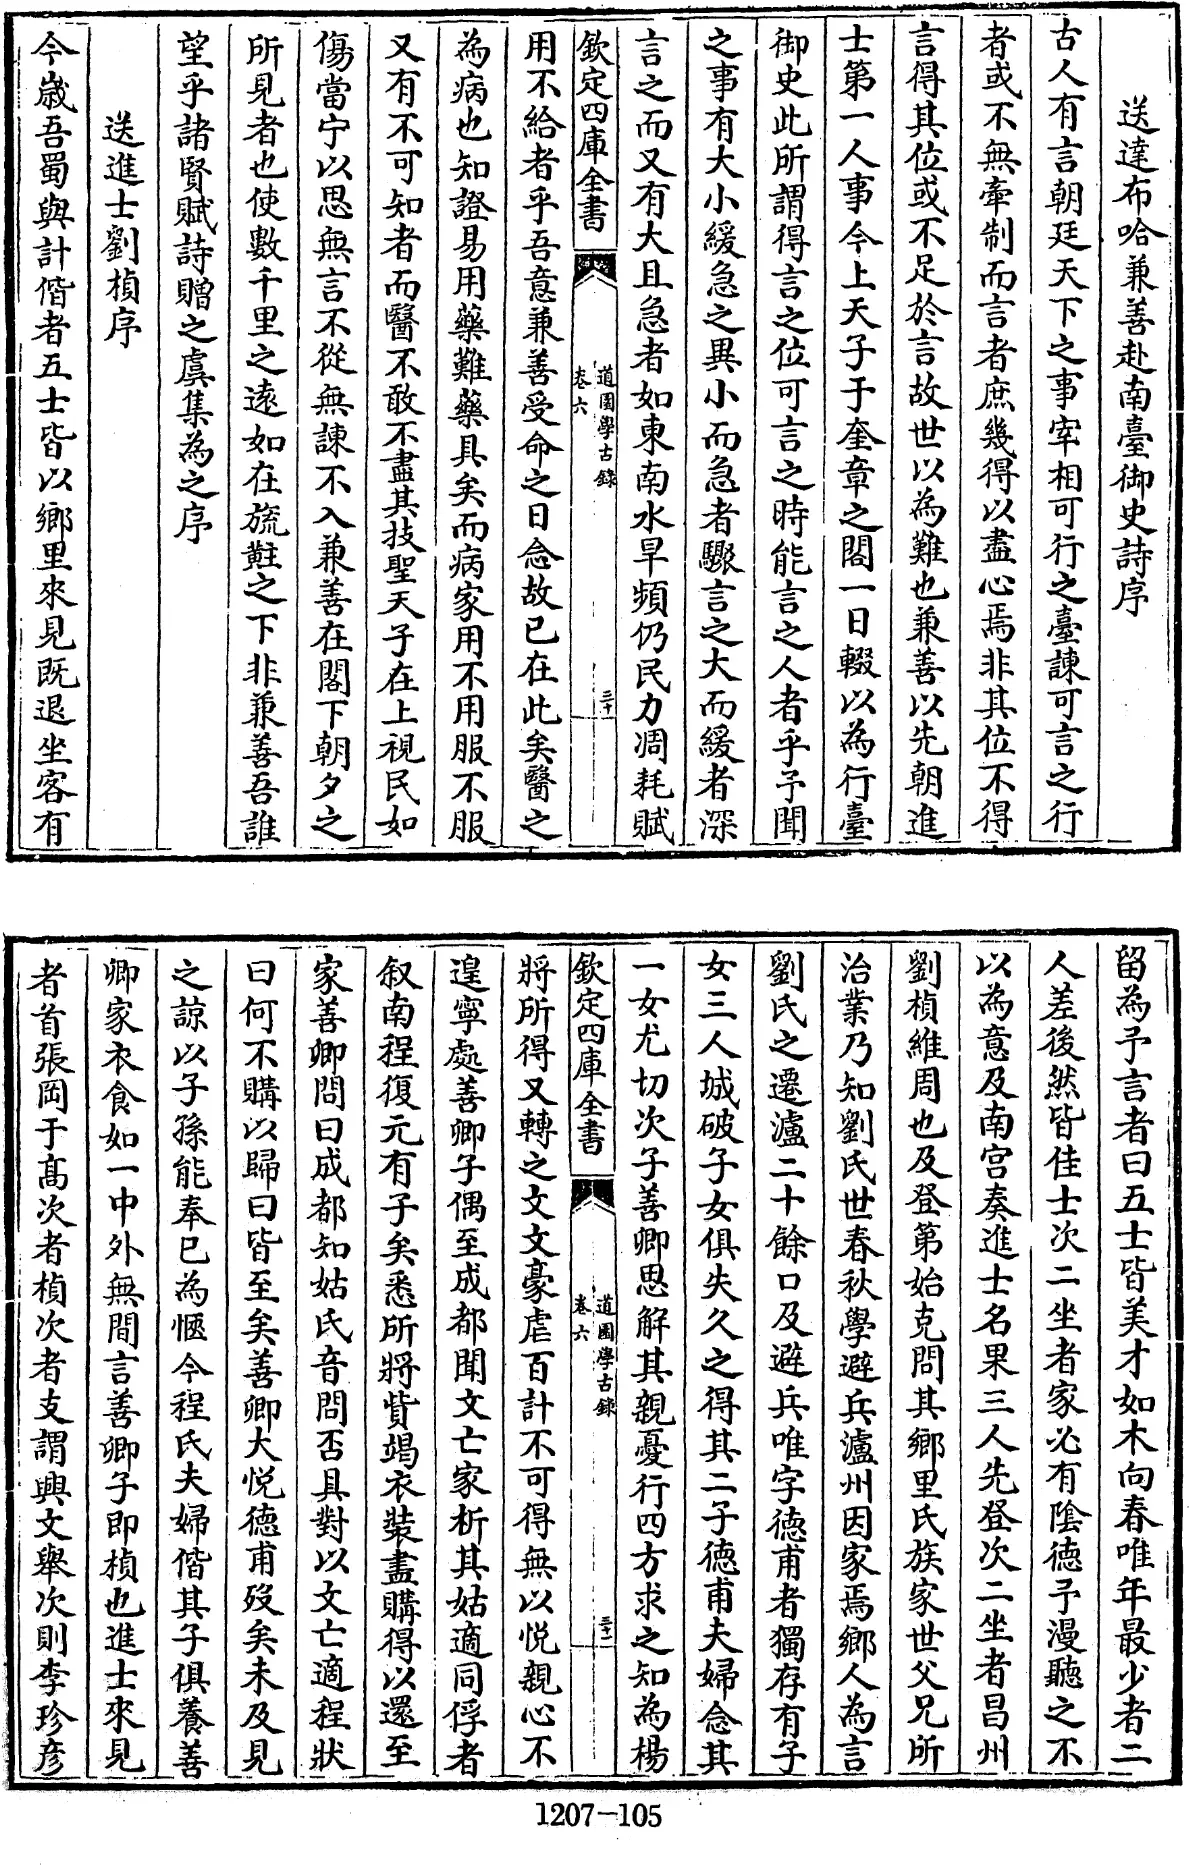 送達布哈兼善赴南臺御史詩序
古人有言朝廷天下之事宰相可行之臺諫可言之行
者或不無牽制而言者庶幾得以盡心焉非其位不得
言得其位或不足於言故世以為難也兼善以先朝進
士第一人事今上天子于奎章之閣一日輟以為行臺
御史此所謂得言之位可言之時能言之人者乎予聞
之事有大小緩急之異小而急者驟言之大而緩者深
言之而又有大且急者如東南水旱頻仍民力凋耗賦
欽定四庫全書
道園學古錄
卷六
三十
用不給者乎吾意兼善受命之日念故已在此矣醫之
為病也知證易用藥難藥具矣而病家用不用服不服
又有不可知者而醫不敢不盡其技聖天子在上視民如
傷當宁以思無言不從無諫不入兼善在閣下朝夕之
所見者也使數千里之遠如在旒黈之下非兼善吾誰
望乎諸賢賦詩贈之虞集為之序
送進士劉楨序
今歲吾蜀與計偕者五士皆以鄉里來見既退坐客有
留為予言者曰五士皆美才如木向春唯年最少者二
人差後然皆佳士次二坐者家必有陰德予漫聽之不
以為意及南宮奏進士名果三人先登次二坐者昌州
劉楨維周也及登第始克問其鄉里氏族家世父兄所
治業乃知劉氏世春秋學避兵瀘州因家焉鄉人為言
劉氏之遷瀘二十餘口及避兵唯字德甫者獨存有子
女三人城破子女俱失久之得其二子德甫夫婦念其
一女尤切次子善卿思解其親憂行四方求之知為楊
欽定四庫全書
道園學古錄
卷六
三十一
將所得又轉之文文豪虐百計不可得無以悅親心不
遑寧處善卿子偶至成都聞文亡家析其姑適同俘者
叙南程復元有子矣悉所將貲竭衣裝盡購得以還至
家善卿問曰成都知姑氏音問否具對以文亡適程狀
曰何不購以歸曰皆至矣善卿大悅德甫歿矣未及見
之諒以子孫能奉已為愜今程氏夫婦偕其子俱養善
卿家衣食如一中外無間言善卿子即楨也進士來見
者首張岡于髙次者楨次者支謂興文舉次則李珍彦
1207-105